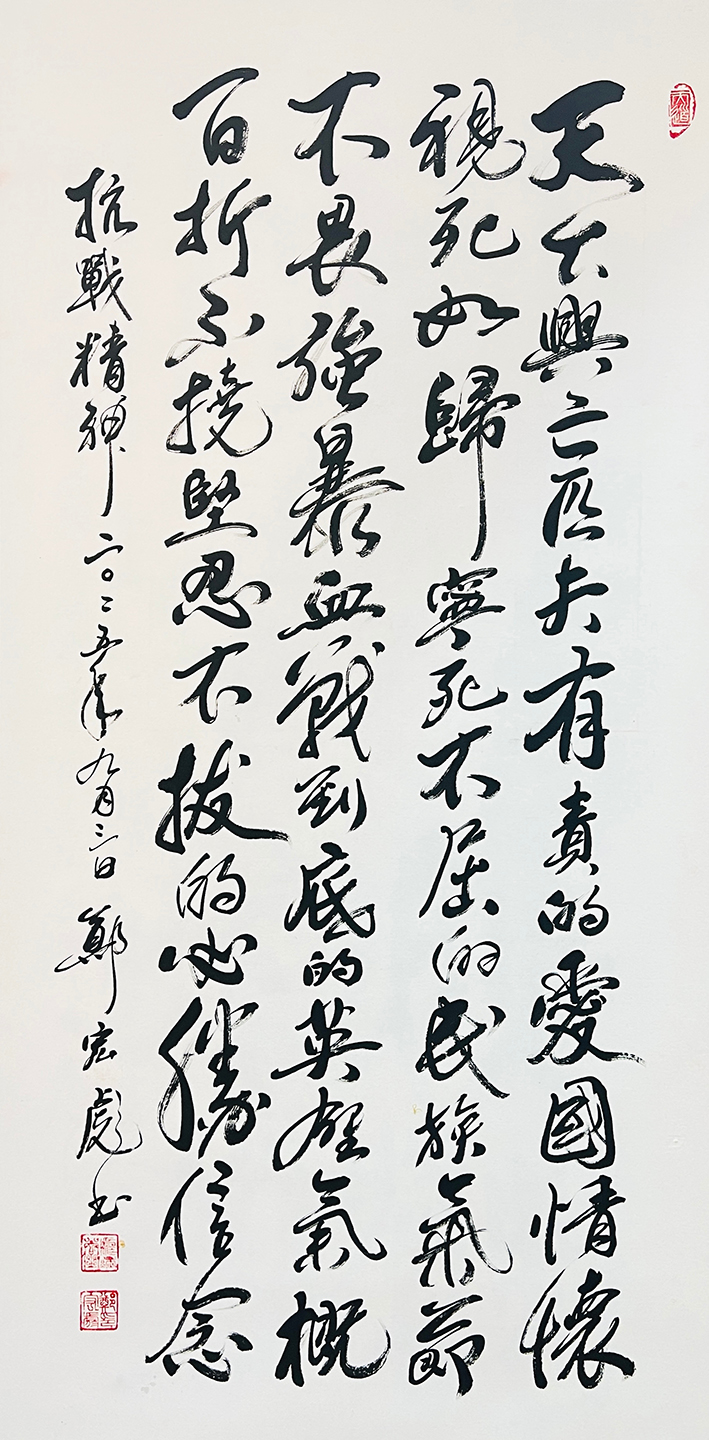 天下興亡匹夫有責的愛國情懷
視死如歸寧死不屈的民族氣節
不畏強暴血戰到底的英雄氣概
百折不撓堅忍不拔的必勝信念
抗戰精神二〇二五年九月三日鄭宏彪书